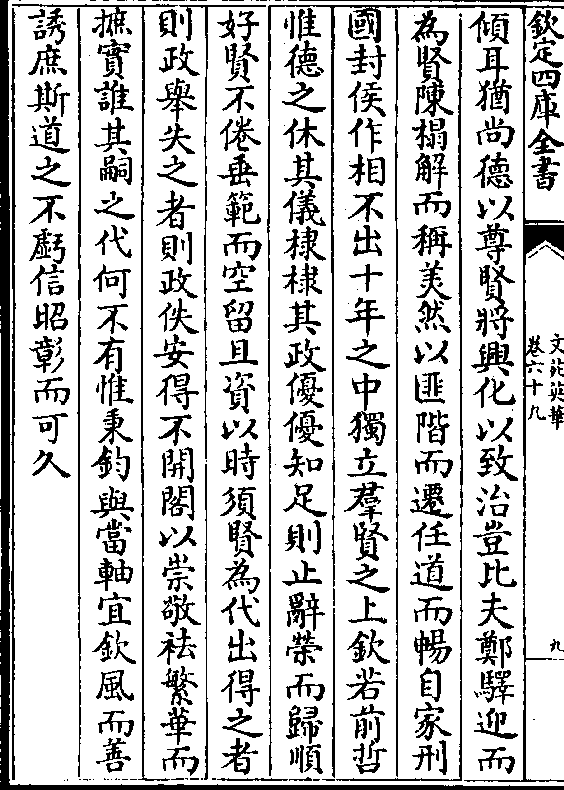 欽定四庫全書
文苑英華
卷六十九
九
傾耳猶尚德以尊賢將興化以致治豈比夫鄭驛迎而
為賢陳榻解而稱美然以匪階而遷任道而暢自家刑
國封侯作相不出十年之中獨立羣賢之上欽若前哲
惟德之休其儀棣棣其政優優知足則止辭榮而歸順
好賢不倦垂範而空留且資以時須賢為代出得之者
則政舉失之者則政佚安得不開閣以崇敬袪繁華而
摭實誰其嗣之代何不有惟秉鈞與當軸宜欽風而善
誘庶斯道之不虧信昭彰而可久